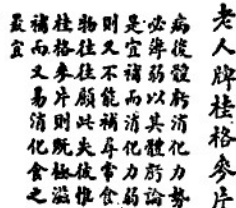 老人牌桂格麥片
病後體虧消化力勢
必薄弱以其體虧論
是宜補而消化力弱
則又不能補尋常食
物往往顧此失彼惟
桂格麥片則既極滋
補而又易消化食之
最宜